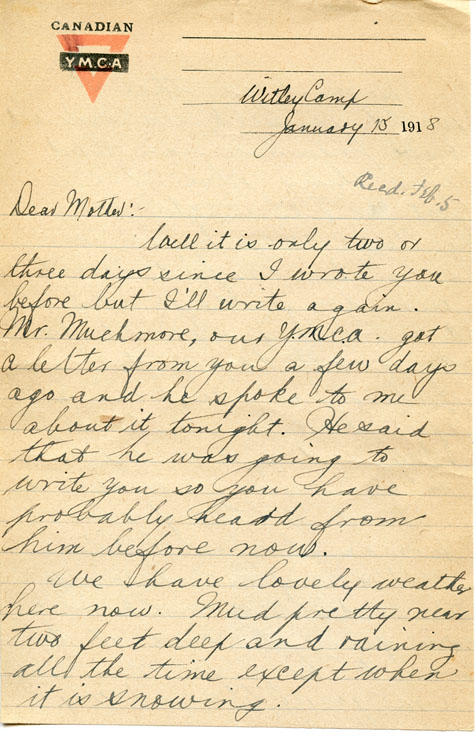 CANADIAN
Y.M.C.A
Witley Camp
January 15 1918
Recd. Feb. 5
Dear Mother:-
Well it is only two or
three days since I wrote you
before but I'll write again.
Mr. Muchmore, our Y.M.C.A. got
a letter from you a few days
ago and he spoke to me
about it tonight. He said
that he was going to
write you so you have
probably heard from
him before now.
We have lovely weather
here now. Mud pretty near
two feet deep and raining
all the time except when
it is snowing.